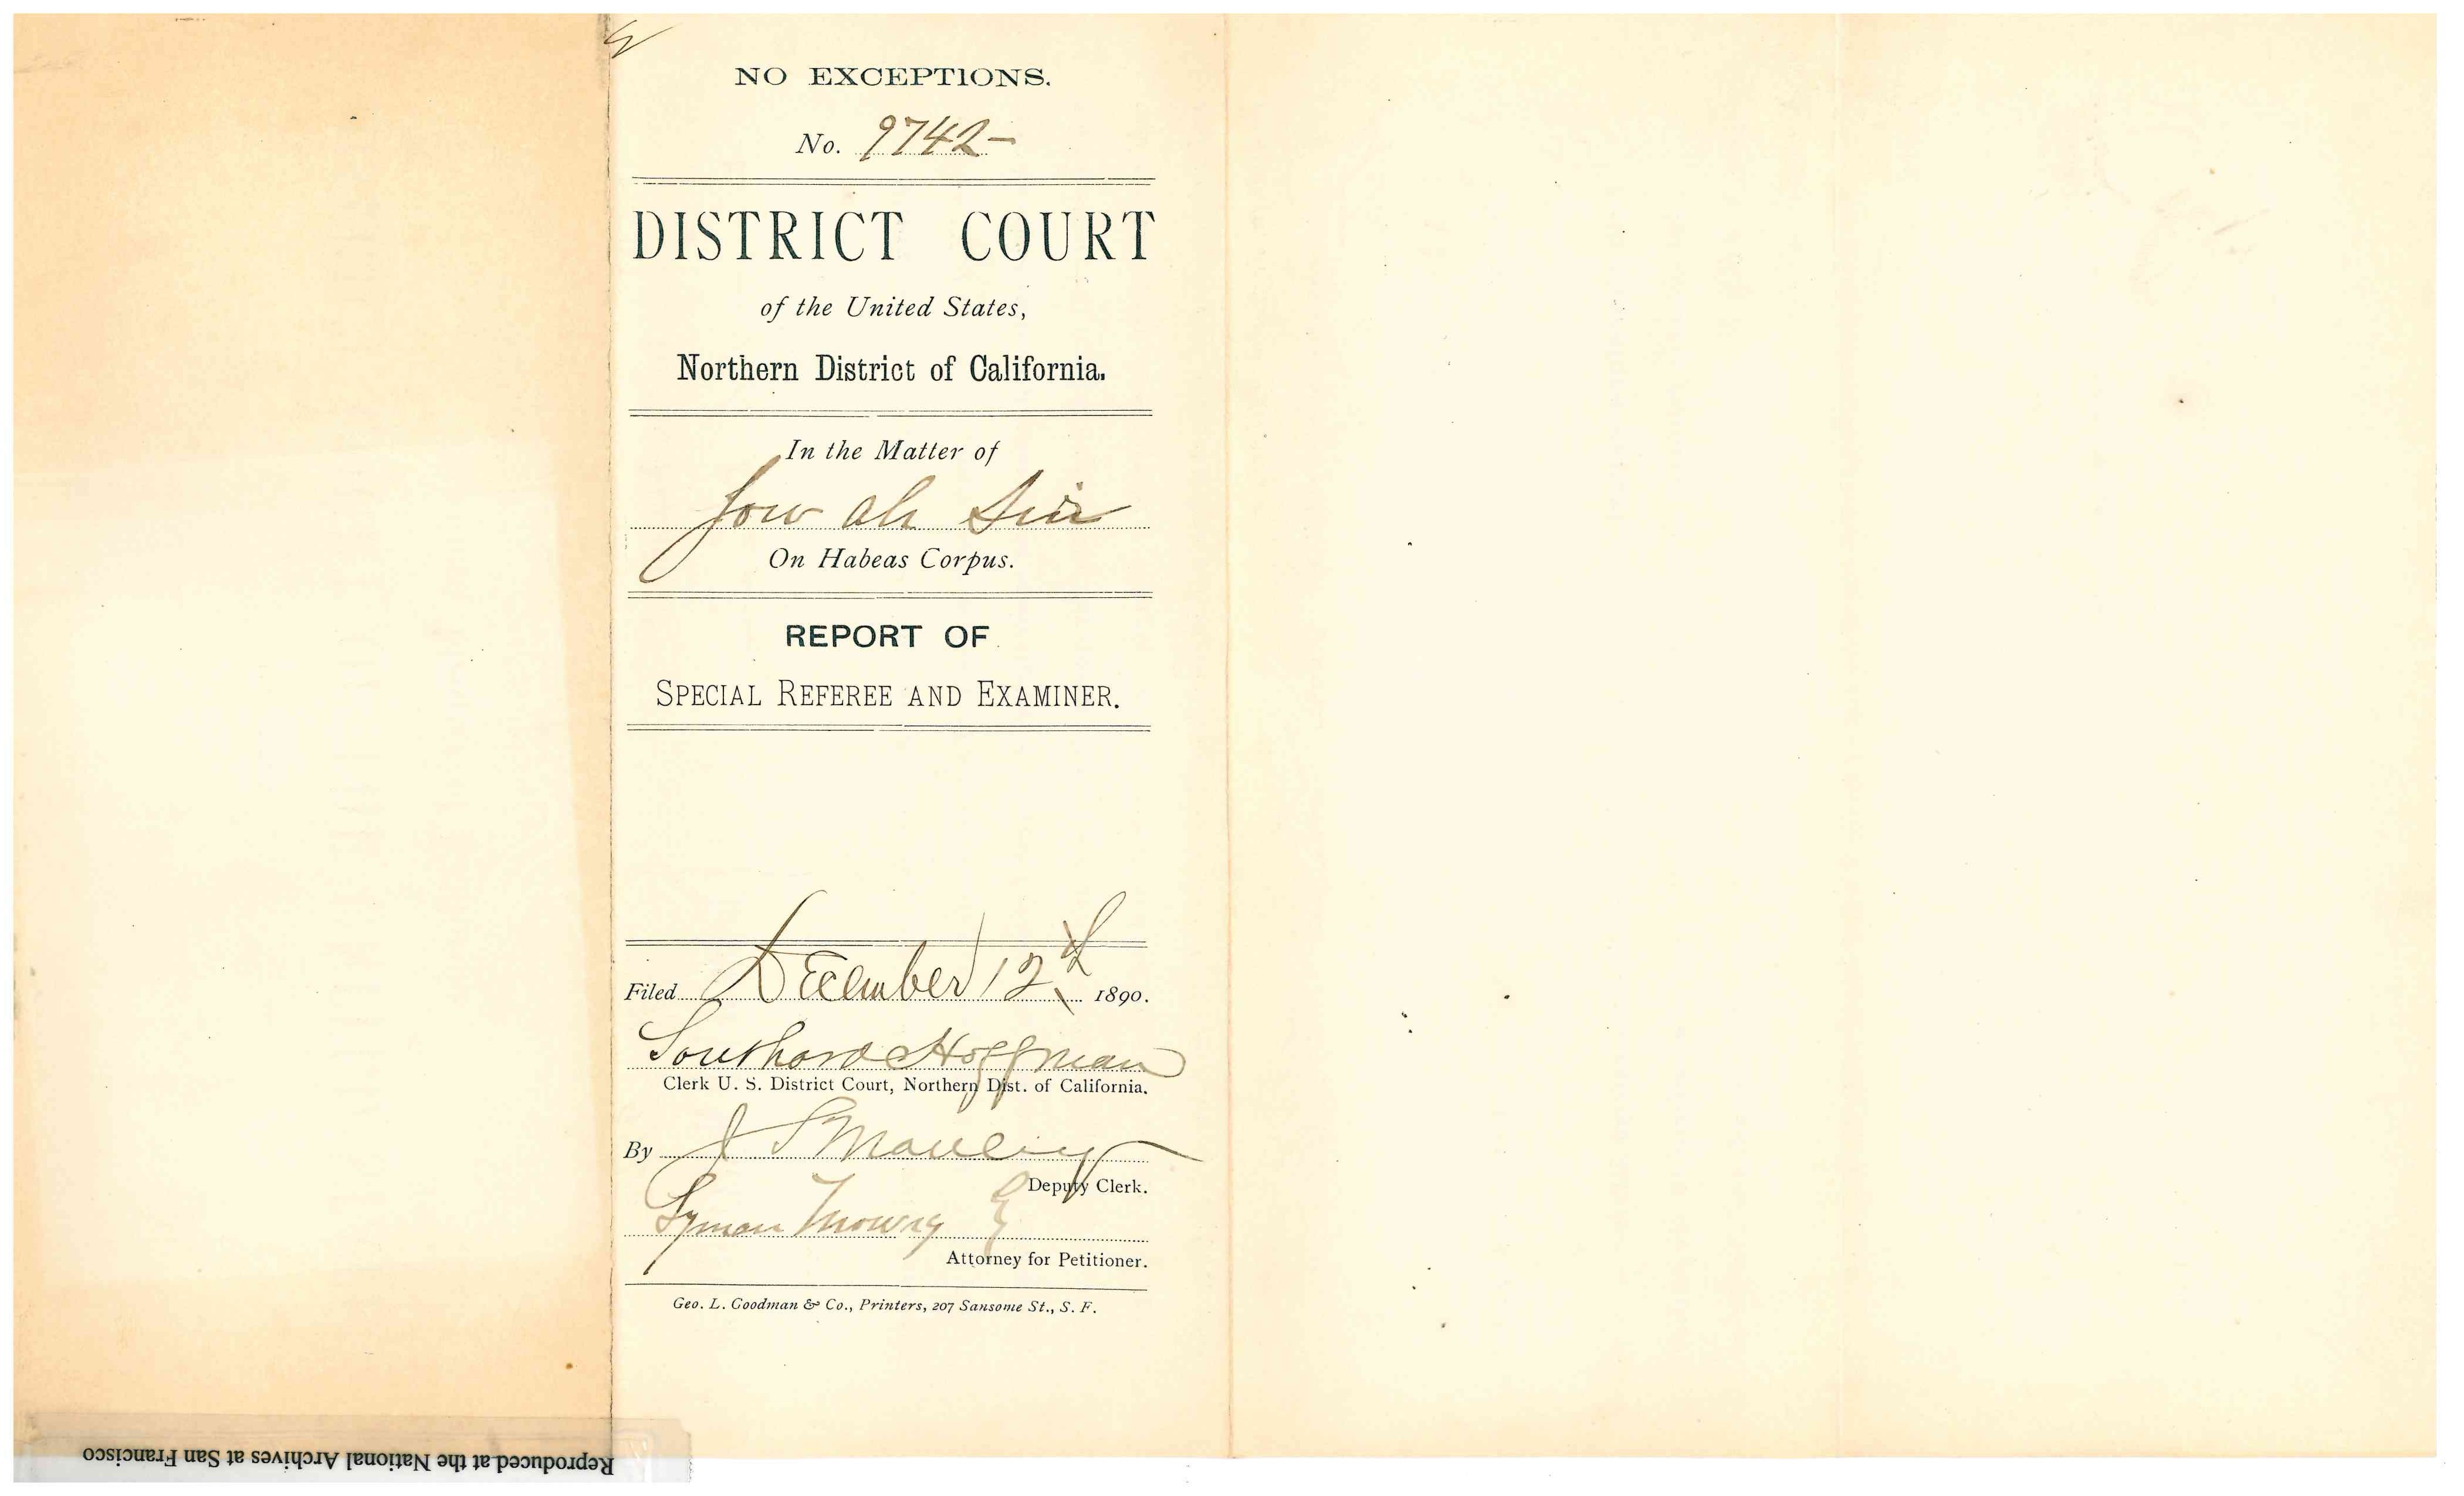 NO EXCEPTIONS.
No. 9742-
DISTRICT COURT
of the United States,
Northern District of California.
In the Matter of
Jow Ah Sin
On Habeas Corpus.
REPORT OF
SPECIAL REFEREE AND EXAMINER.
Filed December 12th 1890.
Southard Hoffman
Clerk U. S. District Court, Northern Dist. of California.
By J S Manley
Deputy Clerk.
Lyman Mowry
Attorney for Petitioner.
Geo. L. Goodman & Co., Printers, 207 Sansome St., S. F.
Reproduced at the National Archives at San Francisco